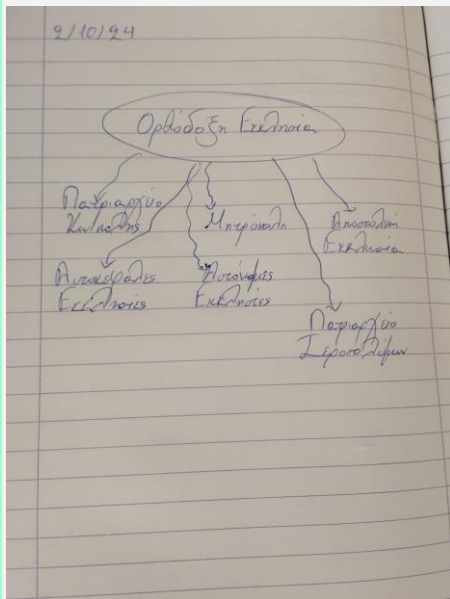 2/10/24
Ορθόδοξη Εκκλησία
Πατριαρχείο
Κων/πολης
Μητρόπολη
Αποστολική
Εκκλησία
Αυτοκέφαλες
Εκκλησίες
Αυτόνομες
Εκκλησίες
Πατριαρχείο
Ιεροσολύμων